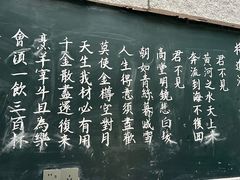 君不見
黃河之水天上來
奔流到海不復回
君不見
高堂明鏡悲白髮
朝如青絲暮成雪
人生得意須盡歡
莫使金樽空對月
天生我材必有用
千金散盡還復來
烹羊宰牛且為樂
會須一飲三百杯